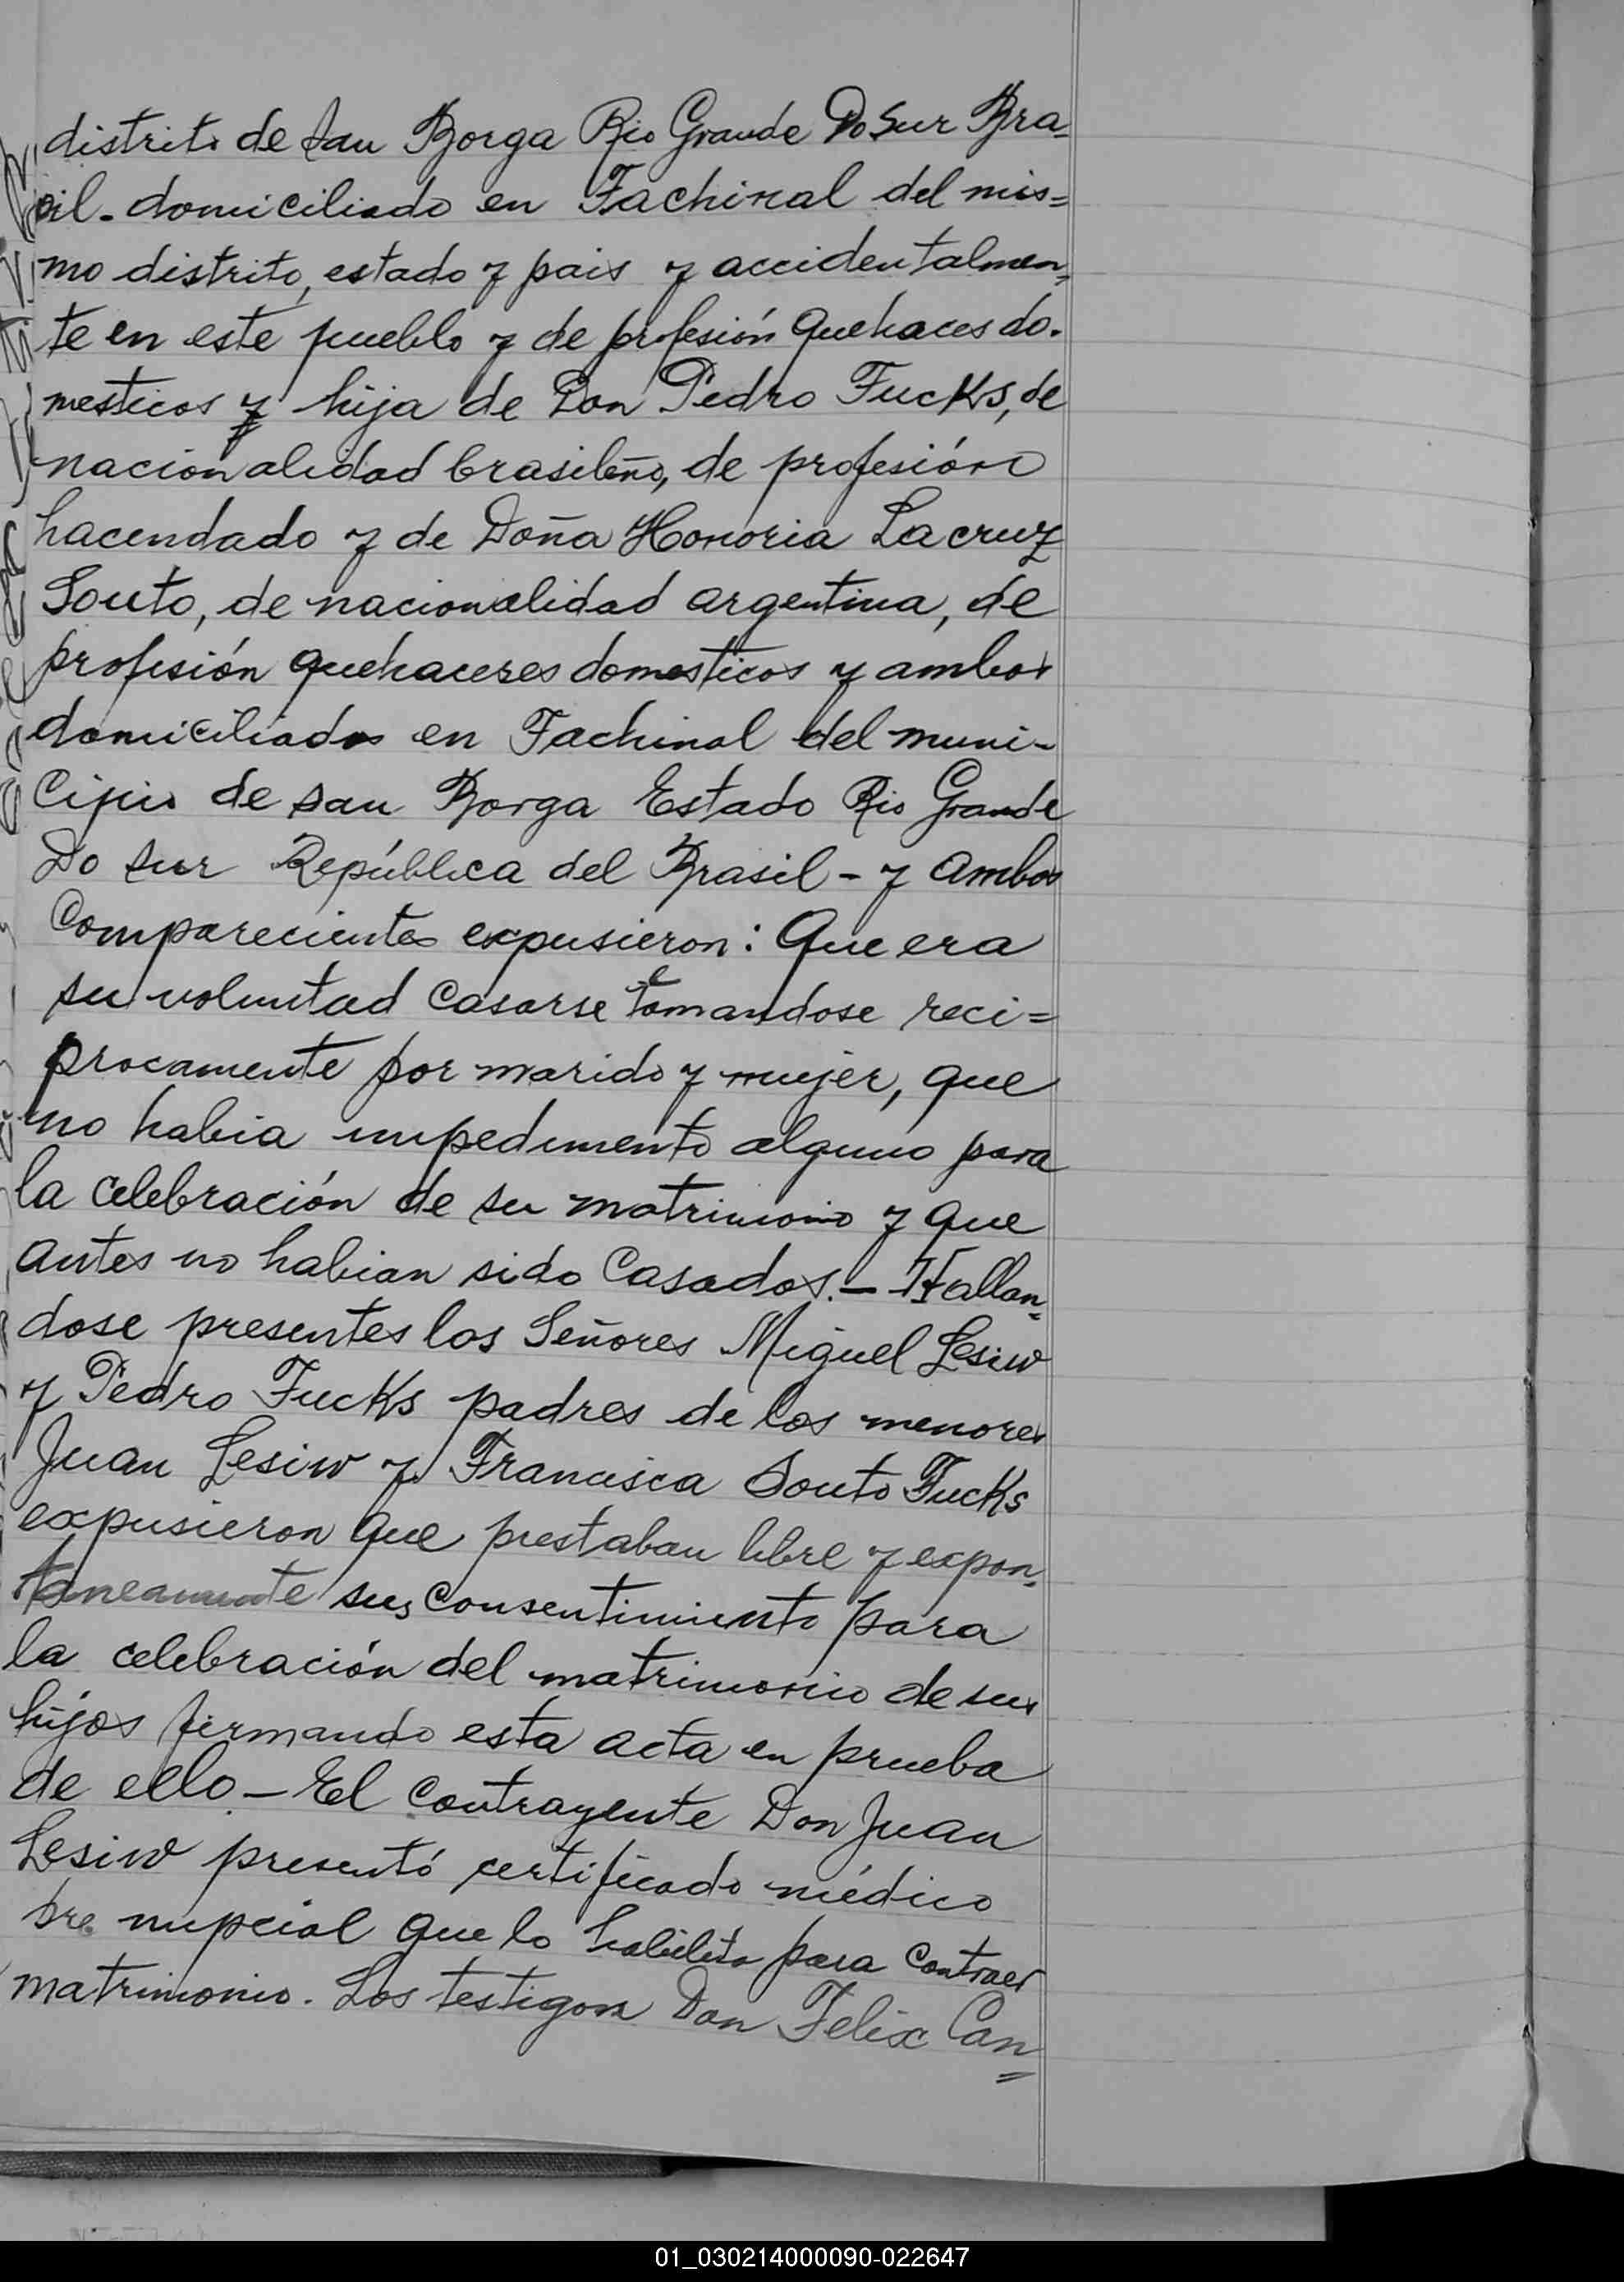 distrito de San Borga Rio Grande Do Sur Bra-
sil - domiciliado en Fachinal del mis=
mo distrito, estado y pais y accidentalmen=
te en este pueblo y de profesión quehaces do-
mesticos y hija de Don Pedro Fucks, de
nacionalidad brasileño, de profesión
hacendado y de Doña Honoria Lacruz
Souto, de nacionalidad argentina, de
profesión quehaceres domesticos y ambos
domiciliados en Fachinal del muni-
cipio de san Borga Estado Rio Grande
Do Sur República del Brasil - y ambos
comparecientes expusieron: Que era
su voluntad casarse tomandose reci=
procamente por marido y mujer, que
no habia impedimento alguno para
la celebración de su matrimonio y que
antes no habian sido casados. - Hallan=
dose presentes los Señores Miguel Lesiw
y Pedro Fucks padres de los menores
Juan Lesiw y Francisca Souto Fucks
expusieron que prestaban libre y expon=
taneamente sus consentimiento para
la celebración del matrimonio de sus
hijos firmando esta acta en prueba
de ello - El contrayente Don Juan
Lesiw presentó certificado médico
pre nupcial que lo habilita para contraer
matrimonio. Los testigos Don Felix Can=
01_030214000090-022647